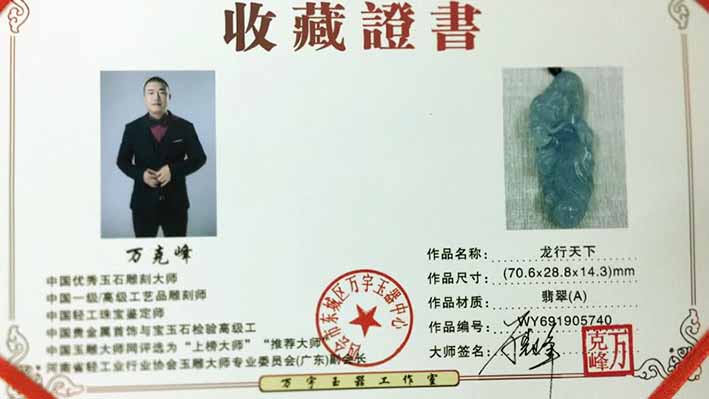 收藏證書
万克峰
中国优秀玉石雕刻大师
中国一级/高级工艺品雕刻师
中国轻工珠宝鉴定师
中国贵金属首饰与宝玉石检验高级工
中国玉雕大师网评选为“上榜大师”“推荐大师”
河南省轻工业行业协会玉雕大师专业委员会(广东)副会长
四会市东城区万字玉器中心
作品名称: 龙行天下
作品尺寸: (70.6x28.8x14.3)mm
作品材质: 翡翠(A)
作品编号: WY691905740
大师签名:
万克峰
万字玉器工作室